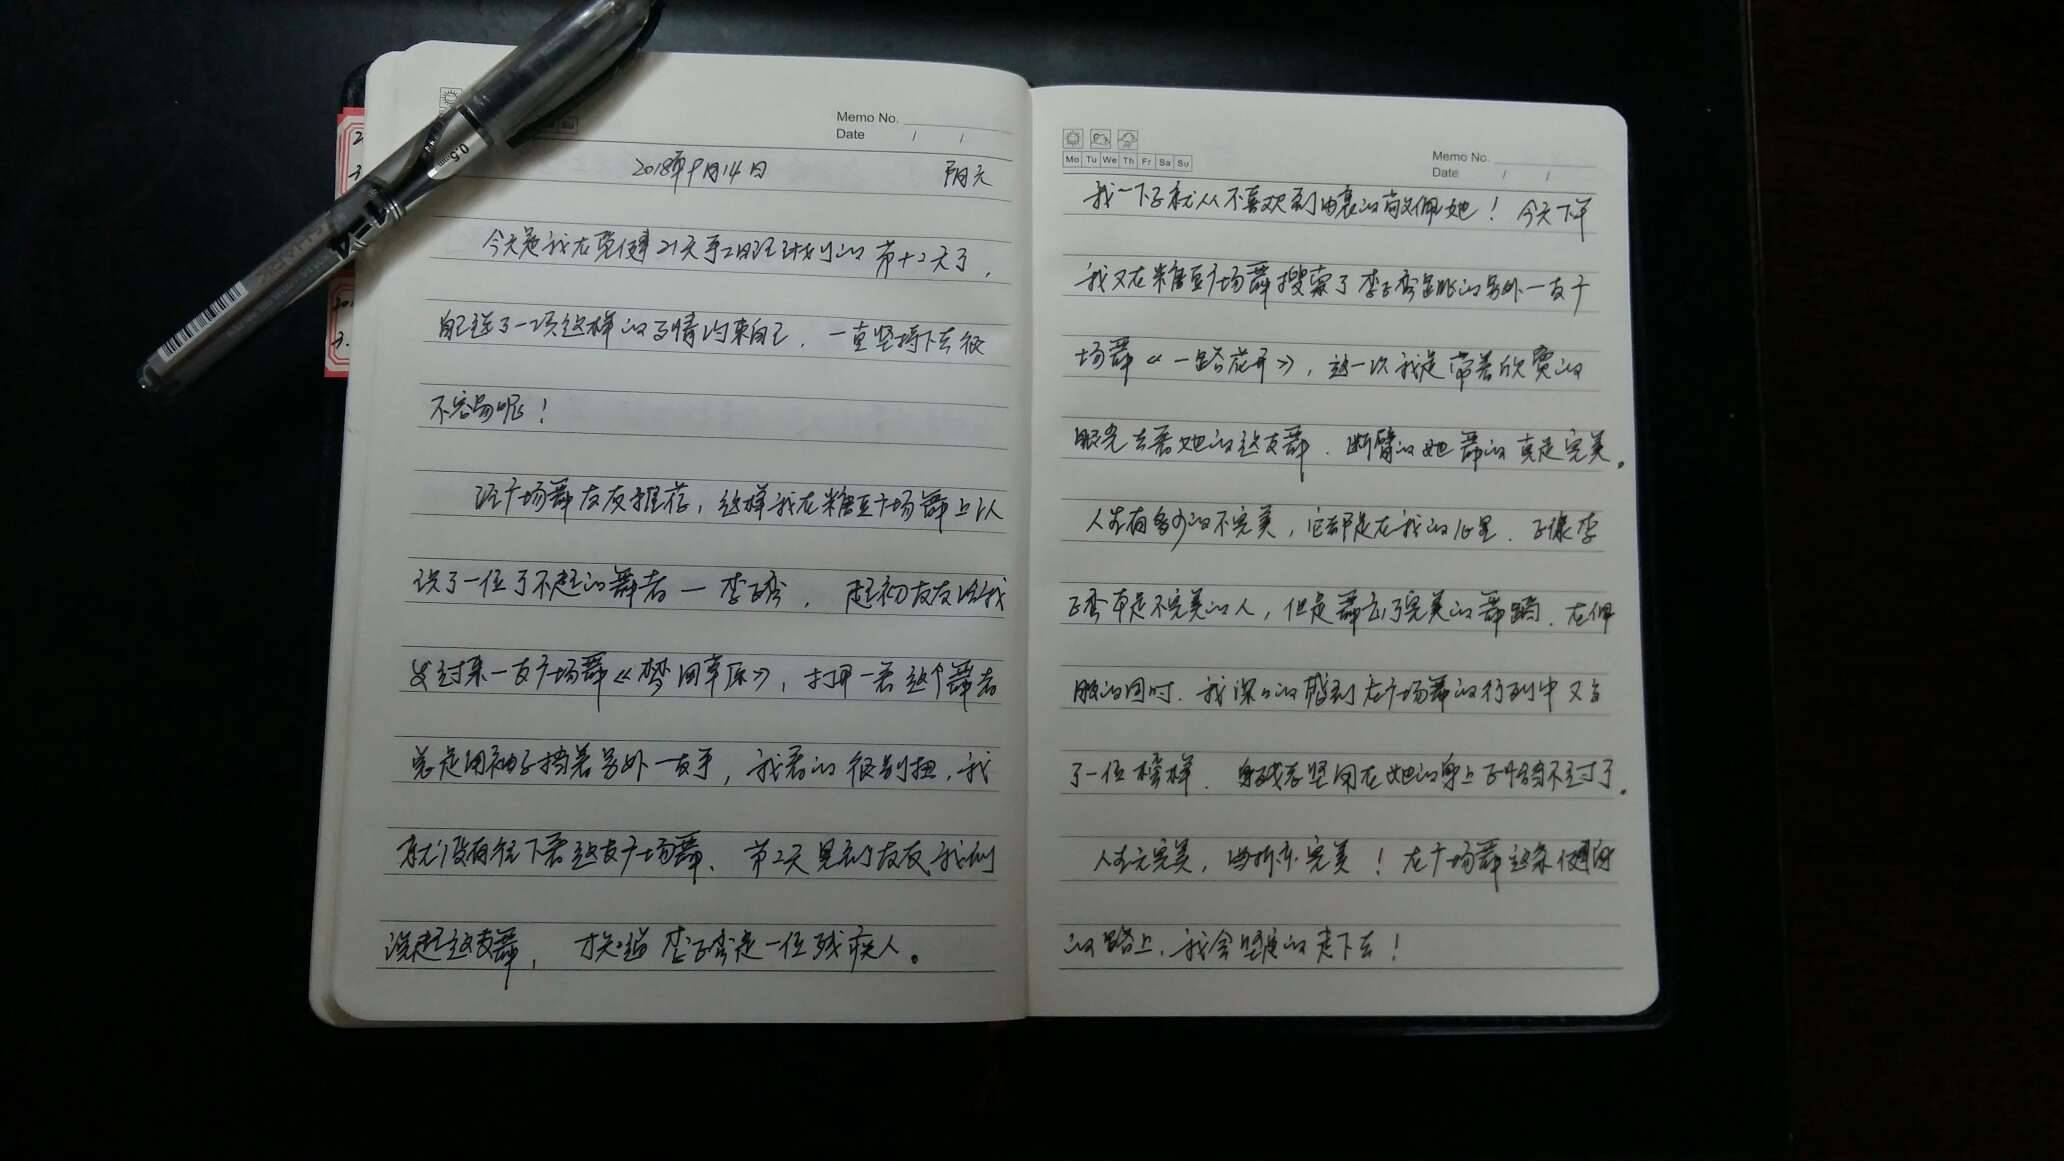 Memo No.
Date / /
2018年9月14日 阴天
今天是我在 21天手 计划的第十二天了，
自己选了一项这样的事情约束自己，一直坚持下去很
不容易呢！
经广场舞友友推荐，这样我在糖豆广场舞上认
识了一位了不起的舞者一李子秀，起初友友给我
发过来一支广场舞《梦回草原》，打开一看这个舞者
总是用袖子挡着另外一支手，我看的很别扭，我
就没有往下看这支广场舞、第2天见到友友我们
说起这支舞，才知道李子秀是一位残疾人。
0.5
Mo Tu We Th Fr Sa Su
Memo No.
Date / /
我一下子就从不喜欢到由衷的敬佩她！今天下午
我又在糖豆广场舞搜索了李子秀跳的另外一支广
场舞《一路花开》，这一次我是带着欣赏的
眼光去看她的这支舞．断臂的她舞的真是完美。
人生有多少的不完美，它都是在我的心里．子像李
子秀本是不完美的人，但是舞出了完美的舞蹈．在佩
服的同时．我深深的感到在广场舞的行列中又多
了一位榜样．身残志坚用在她的身上 恰当不过了。
人生无完美，曲折亦完美！在广场舞这条健身
的路上，我会坚定的走下去！